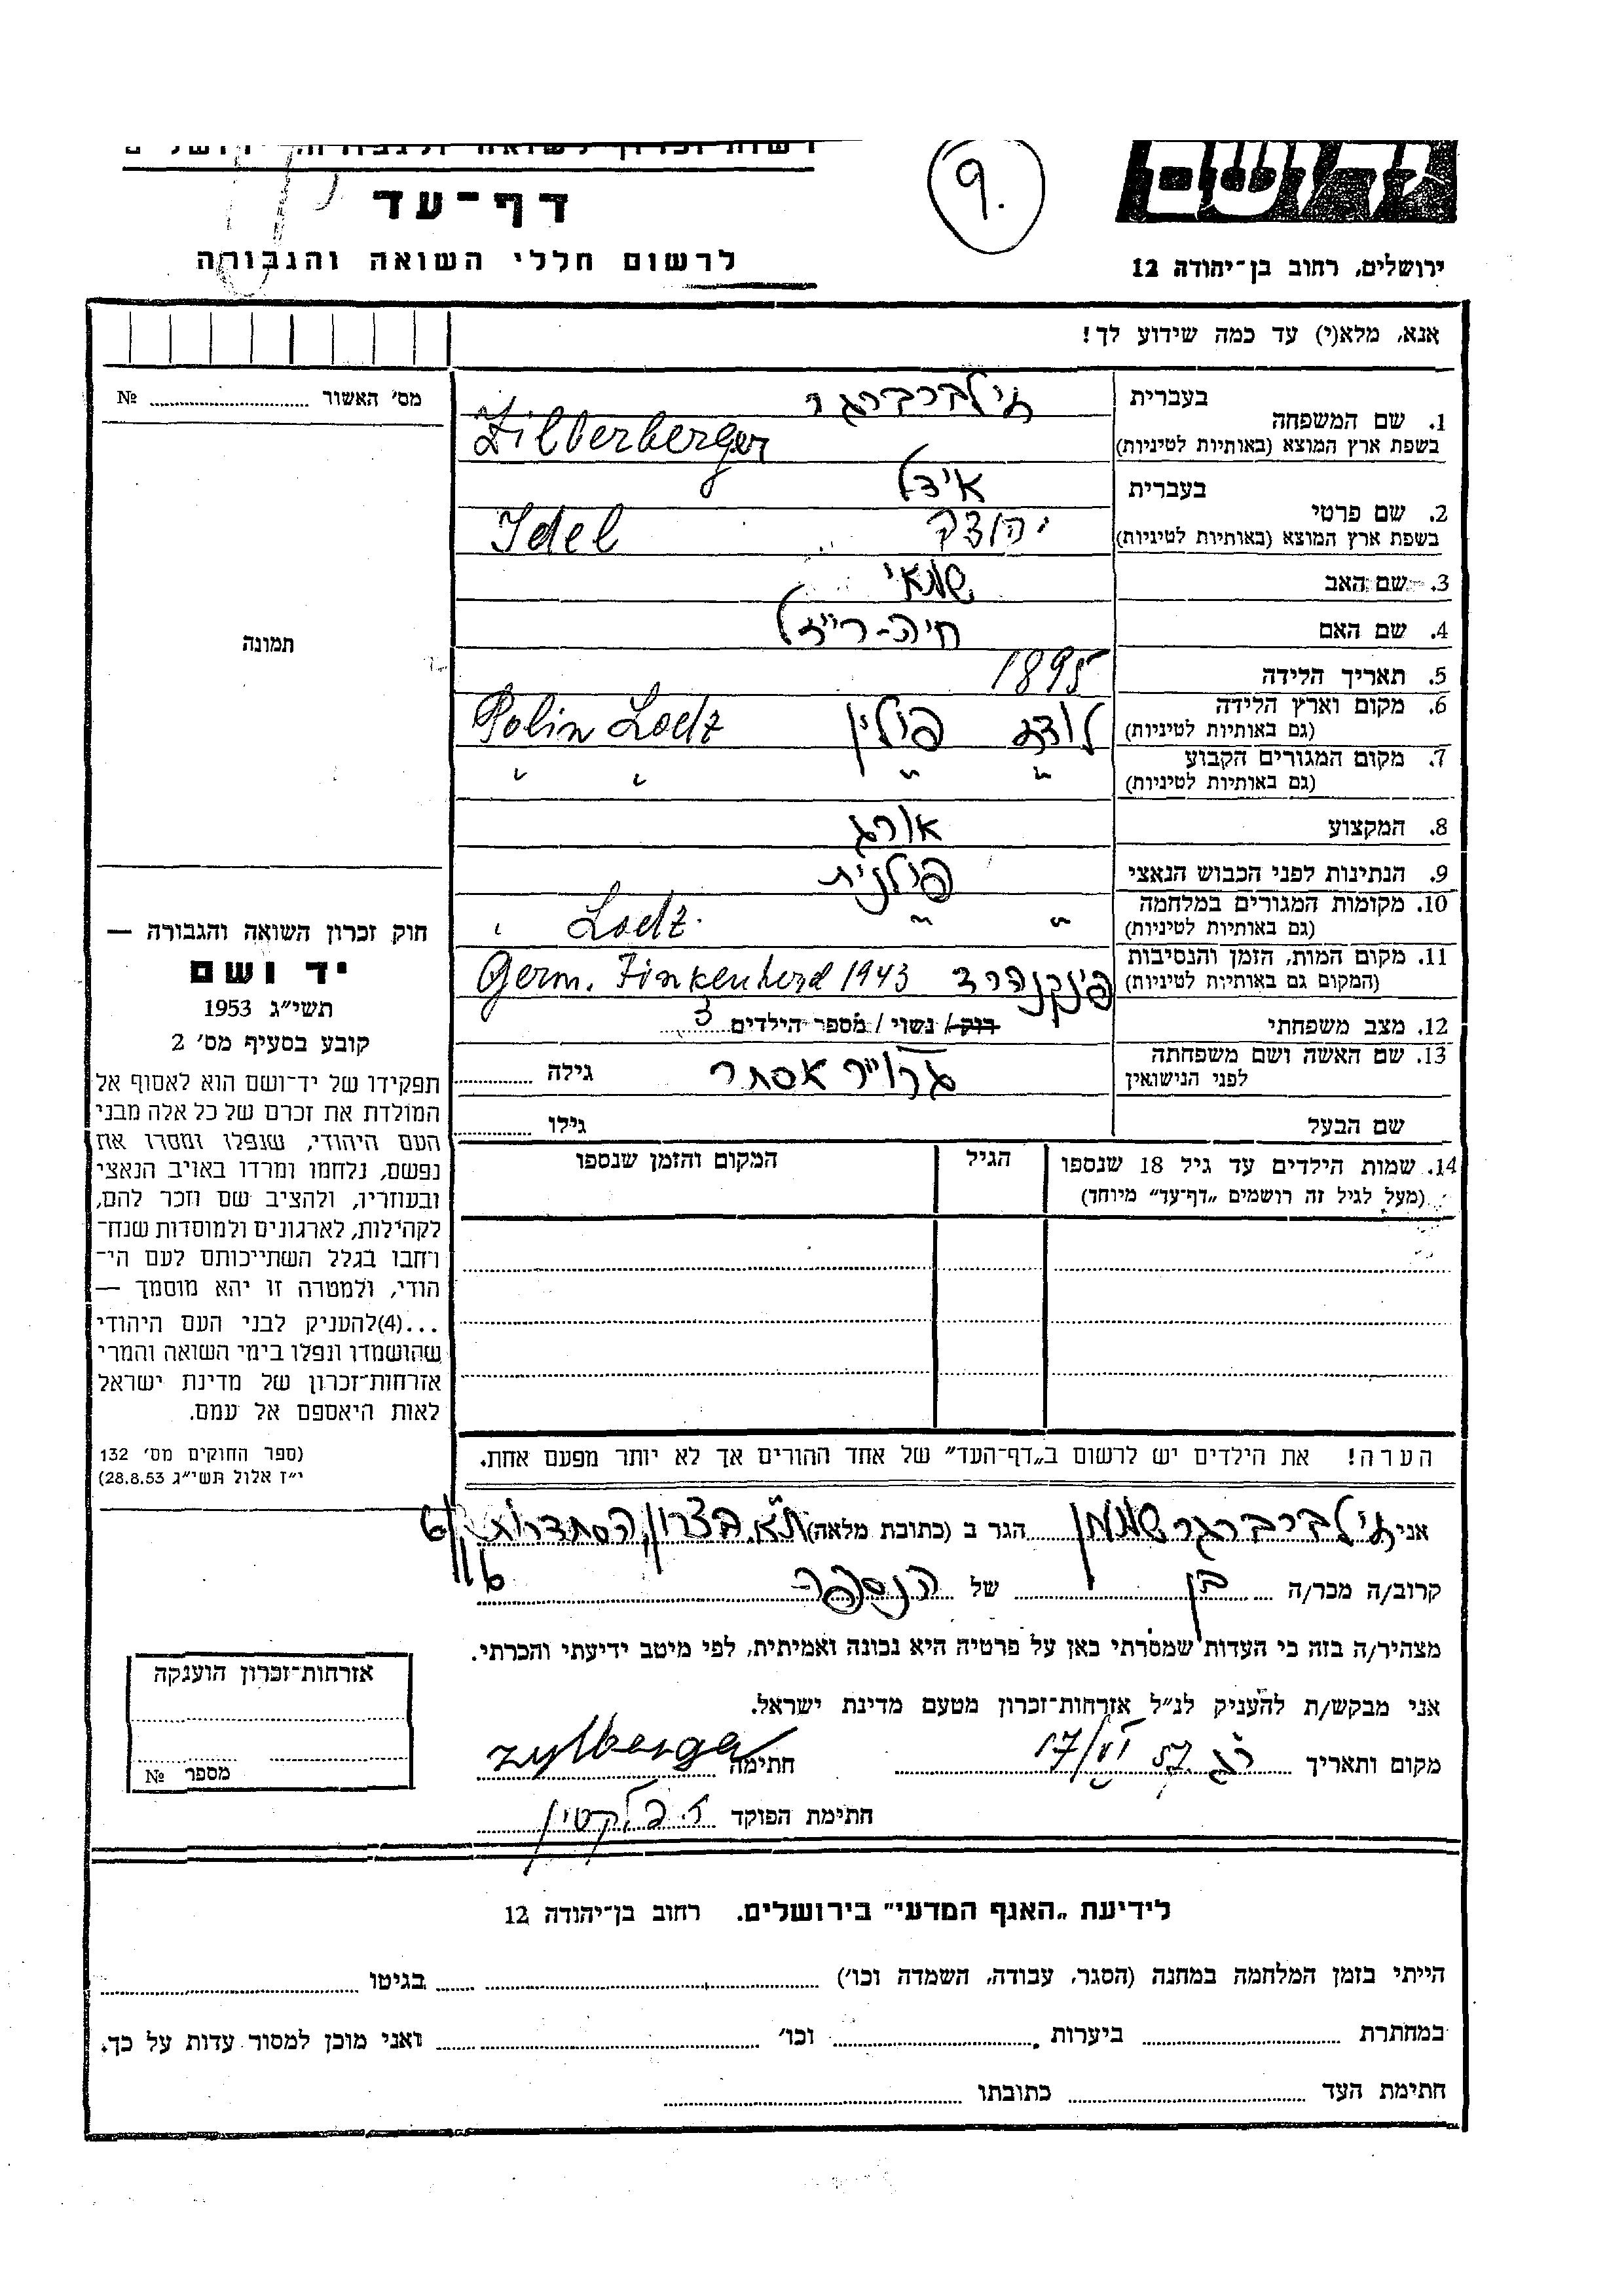 דף-עד
לרשום חללי השואה והגבורה
9.
ירושלים, רחוב בן-יהודה 12
אנא, מלא(י) עד כמה שידוע לך!
מס' האשור № 
1. שם המשפחה
בעברית זילברברגר
בשפת ארץ המוצא (באותיות לטיניות) Zilberberger
2. שם פרטי
בעברית אידל
בשפת ארץ המוצא (באותיות לטיניות) יהודה Idel
3. שם האב שמאי
4. שם האם חיה-רייזל
5. תאריך הלידה 1895
6. מקום וארץ הלידה
(גם באותיות לטיניות) לודז פולין Polin Lodz
7. מקום המגורים הקבוע
(גם באותיות לטיניות) " " " "
8. המקצוע אורג
9. הנתינות לפני הכבוש הנאצי פולנית
10. מקומות המגורים במלחמה
(גם באותיות לטיניות) " " Lodz. "
11. מקום המות, הזמן והנסיבות
(המקום גם באותיות לטיניות) פינקנהרד Germ. Finkenherd 1943
12. מצב משפחתי רוק / נשוי / מספר הילדים 3
13. שם האשה ושם משפחתה
לפני הנישואין אסתר גילה
שם הבעל גילו
14. שמות הילדים עד גיל 18 שנספו
(מעל לגיל זה רושמים „דף-עד" מיוחד)
הגיל
המקום והזמן שנספו
הערה! את הילדים יש לרשום ב„דף-העד" של אחד ההורים אך לא יותר מפעם אחת.
תמונה
חוק זכרון השואה והגבורה —
יד ושם
תשי"ג 1953
קובע בסעיף מס' 2
תפקידו של יד-ושם הוא לאסוף אל
המולדת את זכרם של כל אלה מבני
העם היהודי, שנפלו ומסרו את
נפשם, נלחמו ומרדו באויב הנאצי
ובעוזריו, ולהציב שם וזכר להם,
לקהילות, לארגונים ולמוסדות שנח-
רחבו בגלל השתייכותם לעם הי-
הודי, ולמטרה זו יהא מוסמך —
...(4)להעניק לבני העם היהודי
שהושמדו ונפלו בימי השואה והמרי
אזרחות-זכרון של מדינת ישראל
לאות היאספם אל עמם.
(ספר החוקים מס' 132
י"ז אלול תשי"ג 28.8.53)
אני זילברברגר שמעון הגר ב (כתובת מלאה) ת"א. בצרון, הסתדרות
קרוב/ה מכר/ה בן של הנספה
מצהיר/ה בזה כי העדות שמסרתי כאן על פרטיה היא נכונה ואמיתית, לפי מיטב ידיעתי והכרתי.
אני מבקש/ת להעניק לנ"ל אזרחות-זכרון מטעם מדינת ישראל.
מקום ותאריך רג 17/VI 57 חתימה
חתימת הפוקד
אזרחות-זכרון הוענקה
מספר №
לידיעת „האגף המדעי" בירושלים. רחוב בן-יהודה 12
הייתי בזמן המלחמה במחנה (הסגר, עבודה, השמדה וכו') בגיטו
במחתרת ביערות וכו' ואני מוכן למסור עדות על כך.
חתימת העד כתובתו